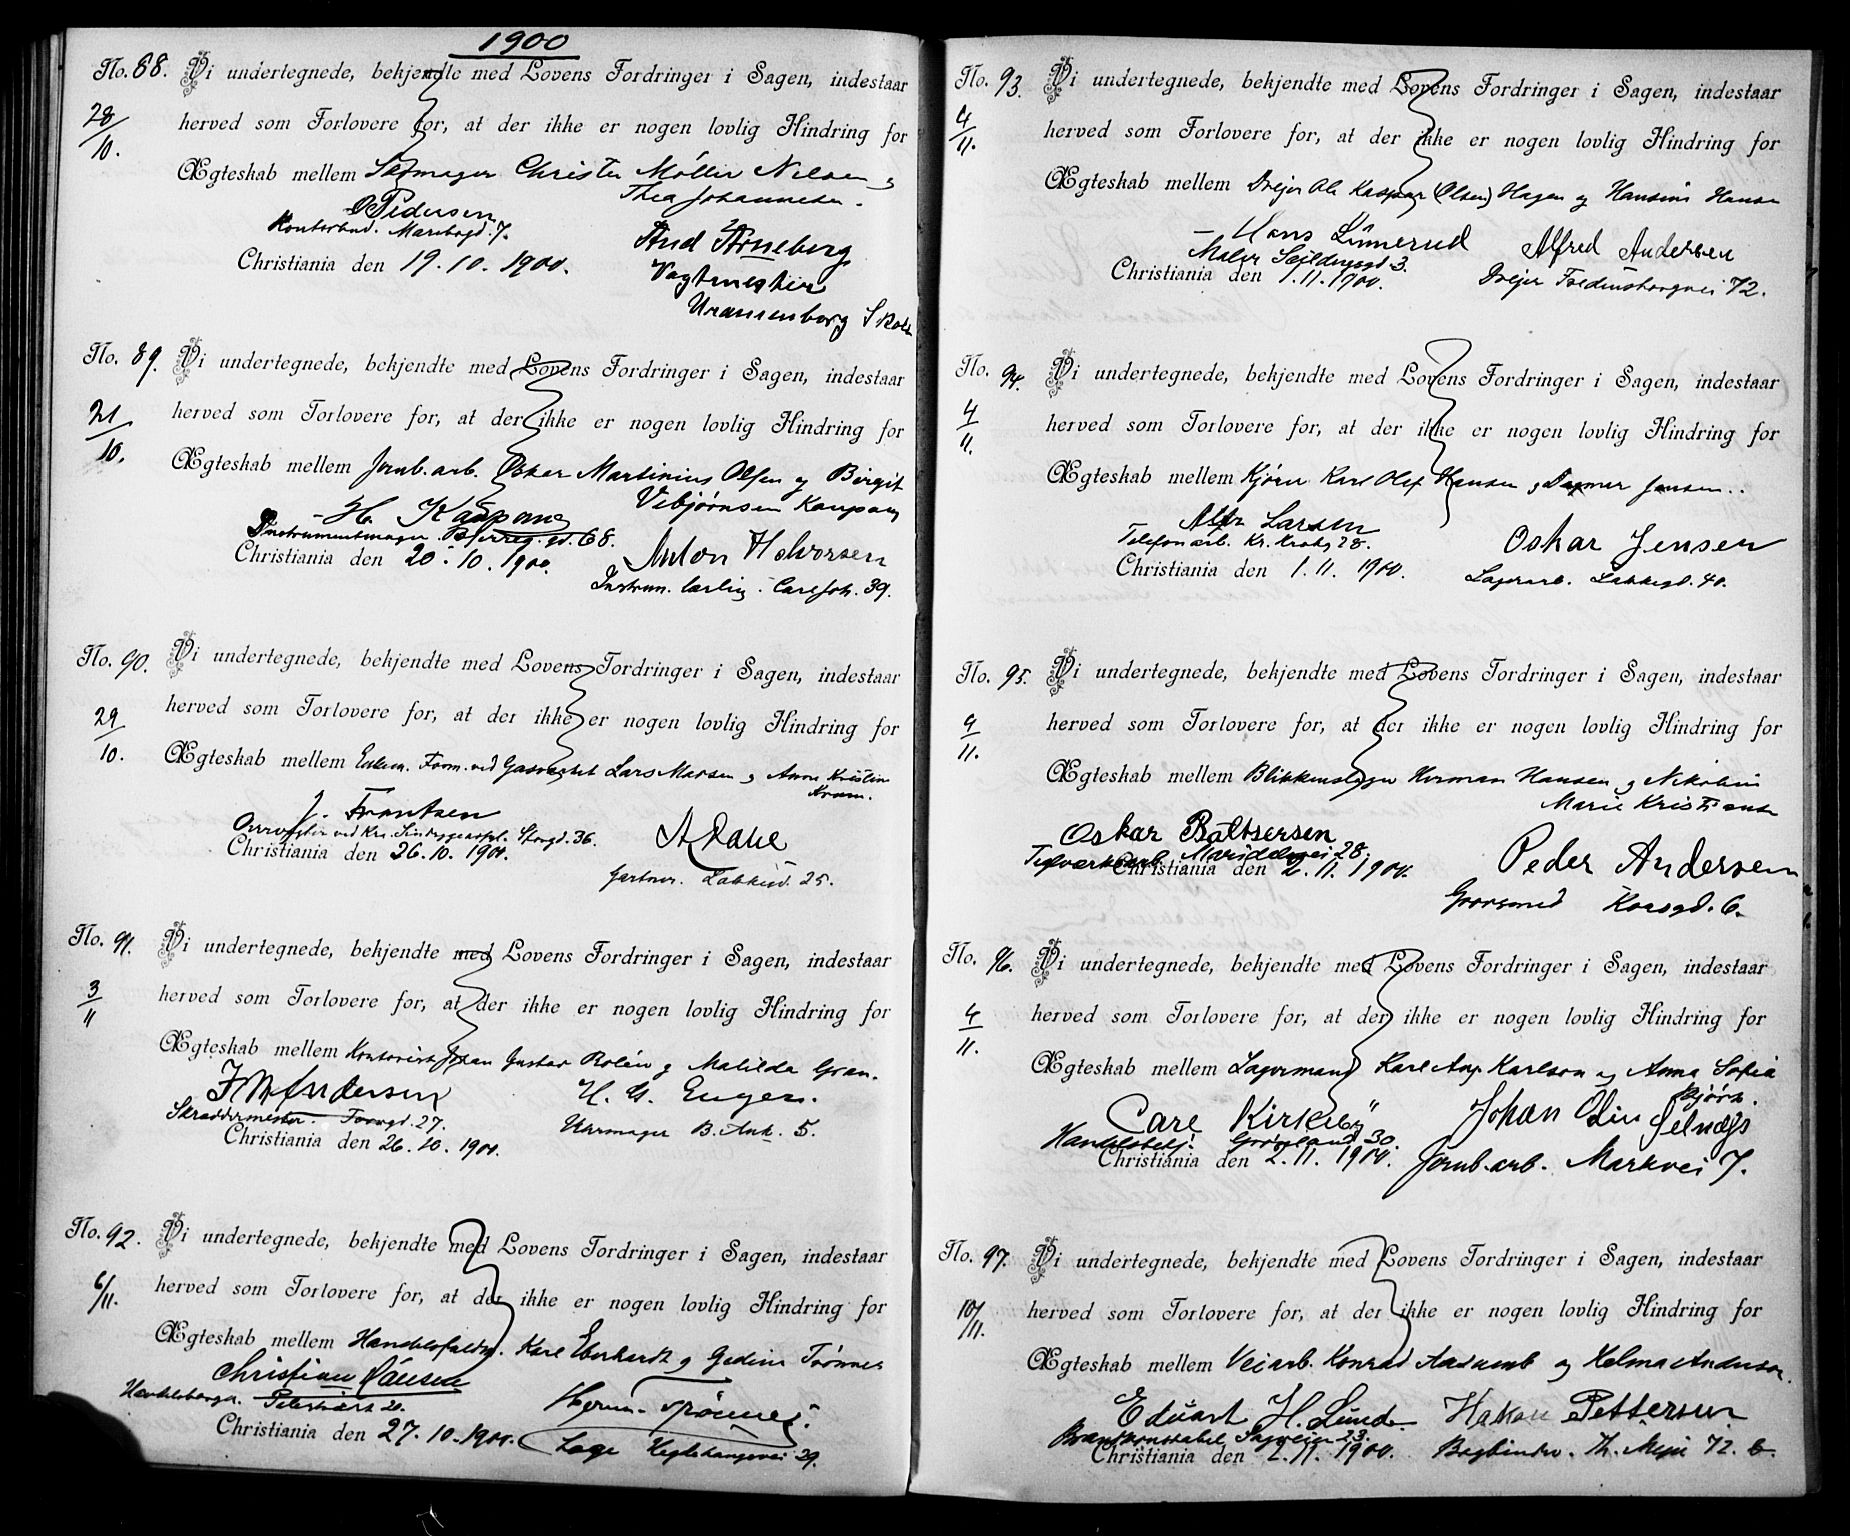 1900
No. 88. Vi undertegnede, bekjendte med Lovens Fordringer i Sagen, indestaar
28/10. herved som Forlovere for, at der ikke er nogen lovlig Hindring for
Ægteskab mellem Skomager Christen Møller Nilsen og
Thea Johannesen.
O Pedersen
Kontorbud. Maribogd. 7.
And Arneberg
Christiania den 19.10.1900.
Vagtmester
Uranienborg Skole
No. 89. Vi undertegnede, bekjendte med Lovens Fordringer i Sagen, indestaar
21/10. herved som Forlovere for, at der ikke er nogen lovlig Hindring for
Ægteskab mellem Jernb.arb. Oskar Martinius Olsen og Birgit
Vebjørnsen Kaupang
H. Kaupang
Instrumentmager 68.
Anton Halvorsen
Christiania den 20.10.1900.
Instrum. Carl Joh. 39.
No. 90. Vi undertegnede, bekjendte med Lovens Fordringer i Sagen, indestaar
29/10. herved som Forlovere for, at der ikke er nogen lovlig Hindring for
Ægteskab mellem Enkem. Form. ved Gasværket Lars Marsen og Anne Kristine
Kram.
J. Frantsen
Overvogter ved Kr. Storgd. 36.
A Dahl
Christiania den 26.10.1900.
Gartner. Lakkegd. 25.
No. 91. Vi undertegnede, bekjendte med Lovens Fordringer i Sagen, indestaar
3/11 herved som Forlovere for, at der ikke er nogen lovlig Hindring for
Ægteskab mellem Kontorist Johan Gustav Rolén og Matilda Gran.
Andersen
H. G. Engen.
Skreddermester. Torvgd. 27.
Urmager B. Ank. 5.
Christiania den 26.10.1900.
No. 92. Vi undertegnede, bekjendte med Lovens Fordringer i Sagen, indestaar
6/11. herved som Forlovere for, at der ikke er nogen lovlig Hindring for
Ægteskab mellem Handelsfuldm. Karl Eberhardt og Gedine Trønnes
Christian Hansen
Handelsborger. 20.
Herm. Trönnes.
Christiania den 27.10.1900.
Læge Hegdehaugsvei 29.
No. 93. Vi undertegnede, bekjendte med Lovens Fordringer i Sagen, indestaar
4/11. herved som Forlovere for, at der ikke er nogen lovlig Hindring for
Ægteskab mellem Dreier Ole Kaspar (Olsen) Hagen og Hansine Hansen
Hans Linnerud
Maler Seildugsgd. 3.
Alfred Andersen
Christiania den 1.11.1900.
Dreier Fredensborgvei 72.
No. 94. Vi undertegnede, bekjendte med Lovens Fordringer i Sagen, indestaar
4/11. herved som Forlovere for, at der ikke er nogen lovlig Hindring for
Ægteskab mellem Kjører Karl Olaf Hansen og Dagmar Jensen.
Alfr Larsen
Telefonarb. Kr. Krohg 28.
Oskar Jensen
Christiania den 1.11.1900.
Lagerarb. Lakkegd. 40.
No. 95. Vi undertegnede, bekjendte med Lovens Fordringer i Sagen, indestaar
4/11. herved som Forlovere for, at der ikke er nogen lovlig Hindring for
Ægteskab mellem Blikkenslager Herman Hansen og Nikoline
Marie Kristiansen
Oskar Baltsersen
Teglverksarb. Maridalsvei 28.
Peder Andersen
Christiania den 2.11.1900.
Grovsmed Korsgd. 6.
No. 96. Vi undertegnede, bekjendte med Lovens Fordringer i Sagen, indestaar
4/11. herved som Forlovere for, at der ikke er nogen lovlig Hindring for
Ægteskab mellem Lagermand Karl Aug. Karlson og Anna Sofia
Bjørk.
Carl Kirkeby
Johan Odin Selnæs
Handelsbetj. Grønland 30.
Christiania den 2.11.1900.
Jernb.arb. Markvei 7.
No. 97. Vi undertegnede, bekjendte med Lovens Fordringer i Sagen, indestaar
10/11. herved som Forlovere for, at der ikke er nogen lovlig Hindring for
Ægteskab mellem Veiarb. Konrad Aasumb og Helma Anderson.
Eduart H. Lund
Hakon Pettersen
Brandkonstabel Sagveien 23.
Christiania den 2.11.1900.
Bogbinder. Th. Meyer 72. b.